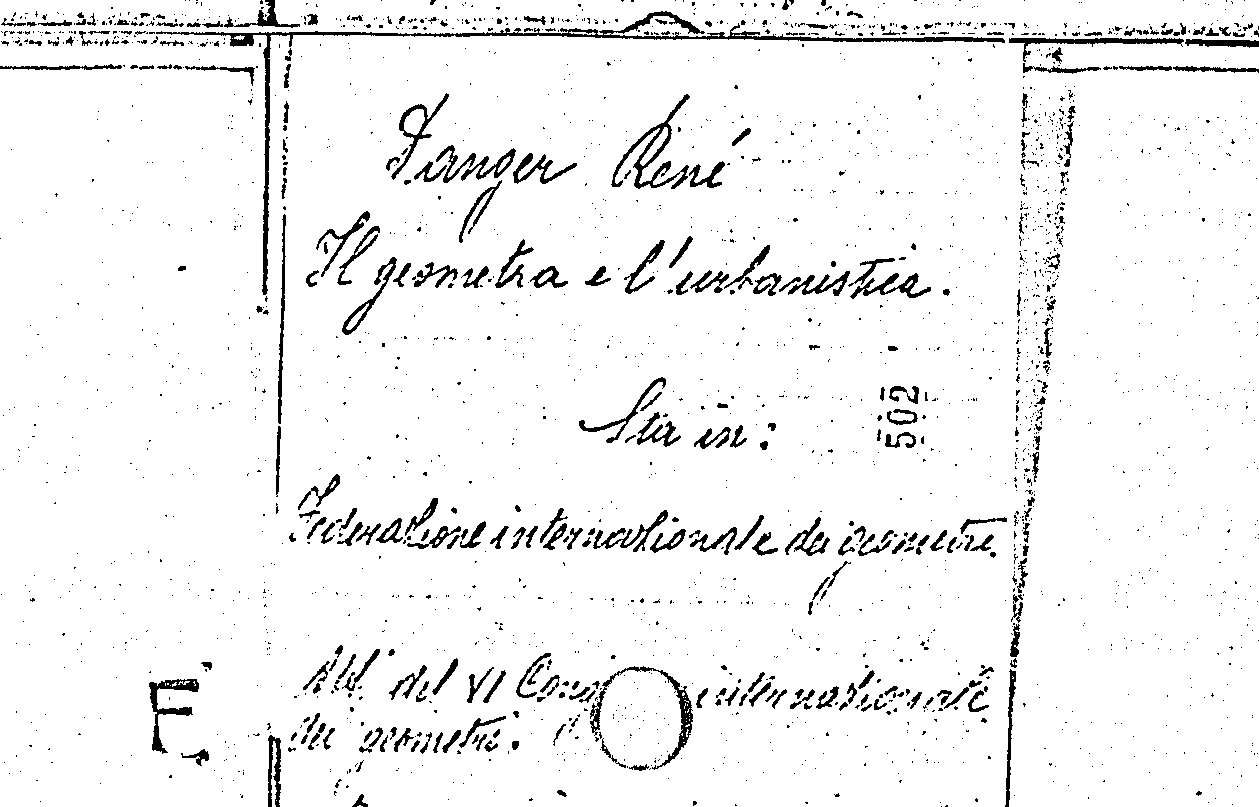 Danger René
Il geometra e l'urbanistica.
Sta in:
502
Federazione internazionale dei geometri.
Atti del VI Cong internazionale
dei geometri.
F